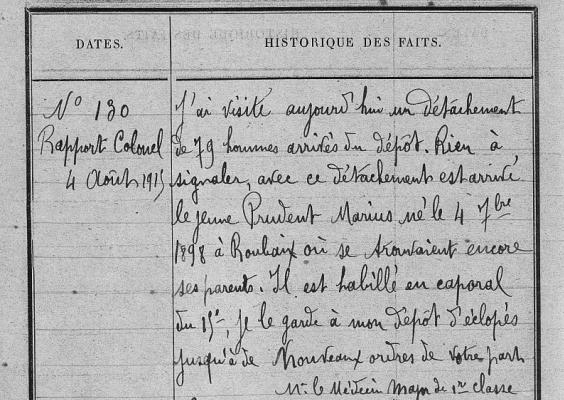 DATES.
HISTORIQUE DES FAITS.
N° 130
Rapport Colonel
4 Août 1915
J'ai visité aujourd'hui un détachement
de 79 hommes arrivés du dépôt. Rien à
signaler, avec ce détachement est arrivé
le jeune Prudent Marius né le 4 7bre
1898 à Roubaix où se trouvaient encore
ses parents. Il est habillé en caporal
du 15e, je le garde à mon dépôt d'éclopés
jusqu'à de Nouveaux ordres de votre part
Mr le Médecin Major de 1re classe